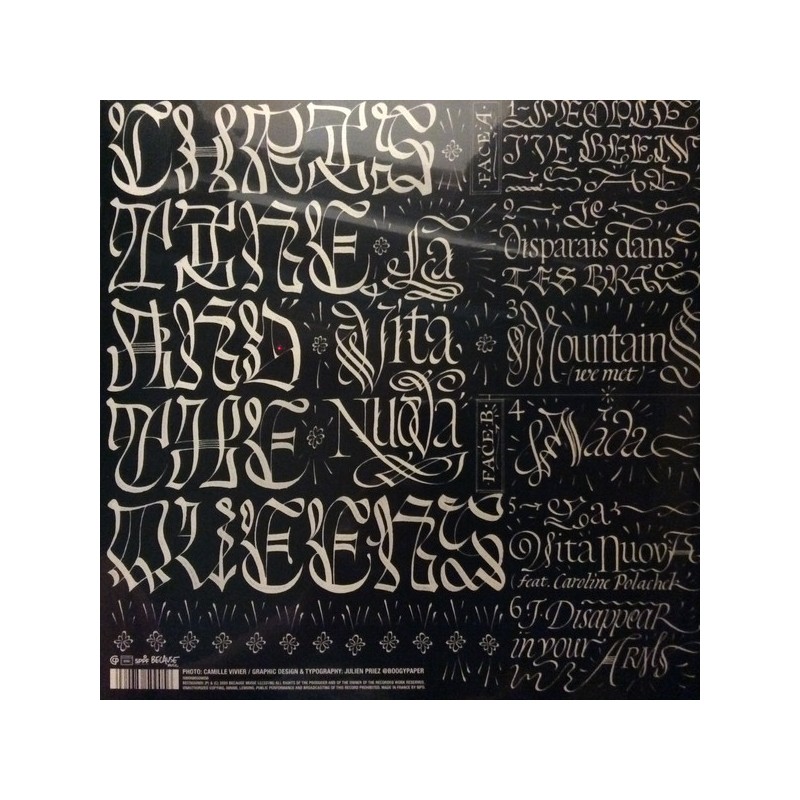 CHRIS
TINE La
AND Vita
THE Nuova
QUEENS
FACE A
1 PEOPLE,
I'VE BEEN
SAD
2 Je
Disparais dans
TES BRAS
3
Mountains
(we met)
FACE B
4 Nada
5 La
Vita Nuova
feat. Caroline Polachek
6 I Disappear
in your ARMS
BECAUSE
PHOTO: CAMILLE VIVIER / GRAPHIC DESIGN & TYPOGRAPHY: JULIEN PRIEZ @BOOGYPAPER